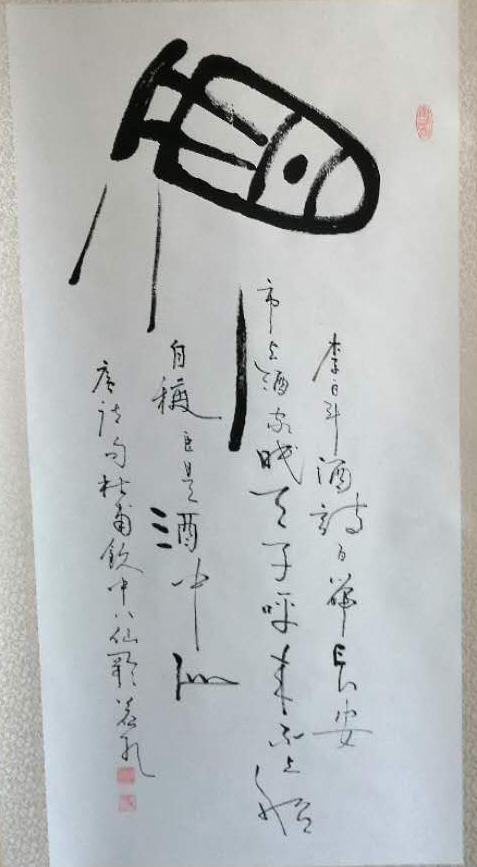 李白斗酒诗百篇長安
市上酒家眠天子呼来不上船
自稱臣是酒中仙
唐诗句杜甫飲中八仙歌